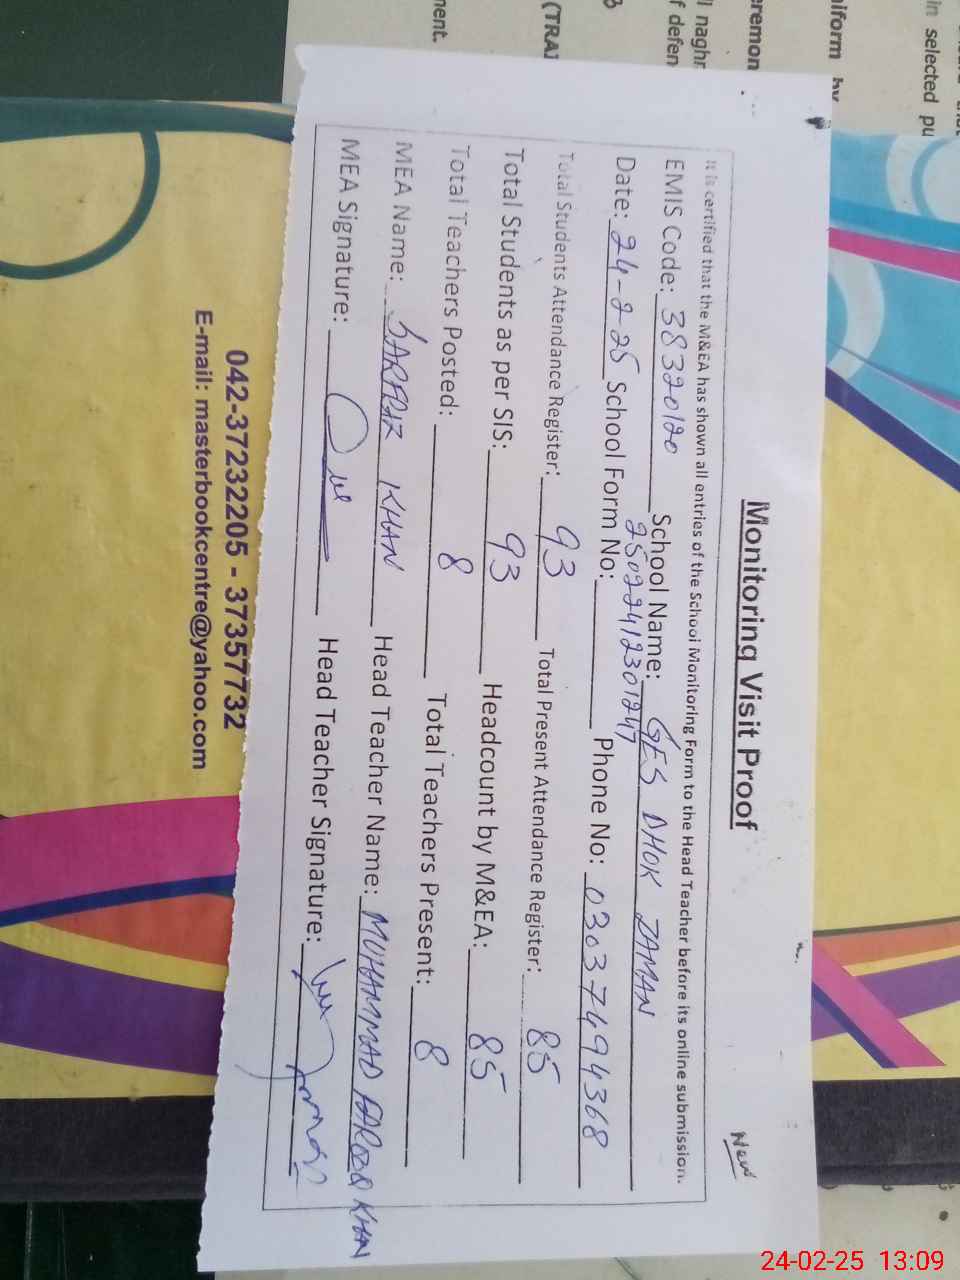 Monitoring Visit Proof
New
It is certified that the M&EA has shown all entries of the School Monitoring Form to the Head Teacher before its online submission.
EMIS Code: 38320120 School Name: GES DHOK ZAMAN
25022412301247
Date: 24-2-25 School Form No: Phone No: 03037494368
Total Students Attendance Register: 93 Total Present Attendance Register: 85
Total Students as per SIS: 93 Headcount by M&EA: 85
Total Teachers Posted: 8 Total Teachers Present: 8
MEA Name: SARFRAZ KHAN Head Teacher Name: MUHAMMAD FAROOQ KHAN
MEA Signature: Head Teacher Signature:
042-37232205 - 37357732
E-mail: masterbookcentre@yahoo.com
in selected pu
niform by
eremon
ll naghr
f defen
(TRAI
ment.
24-02-25 13:09